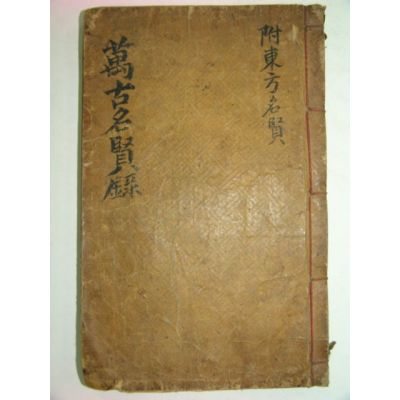 附東方名賢
萬古名賢錄